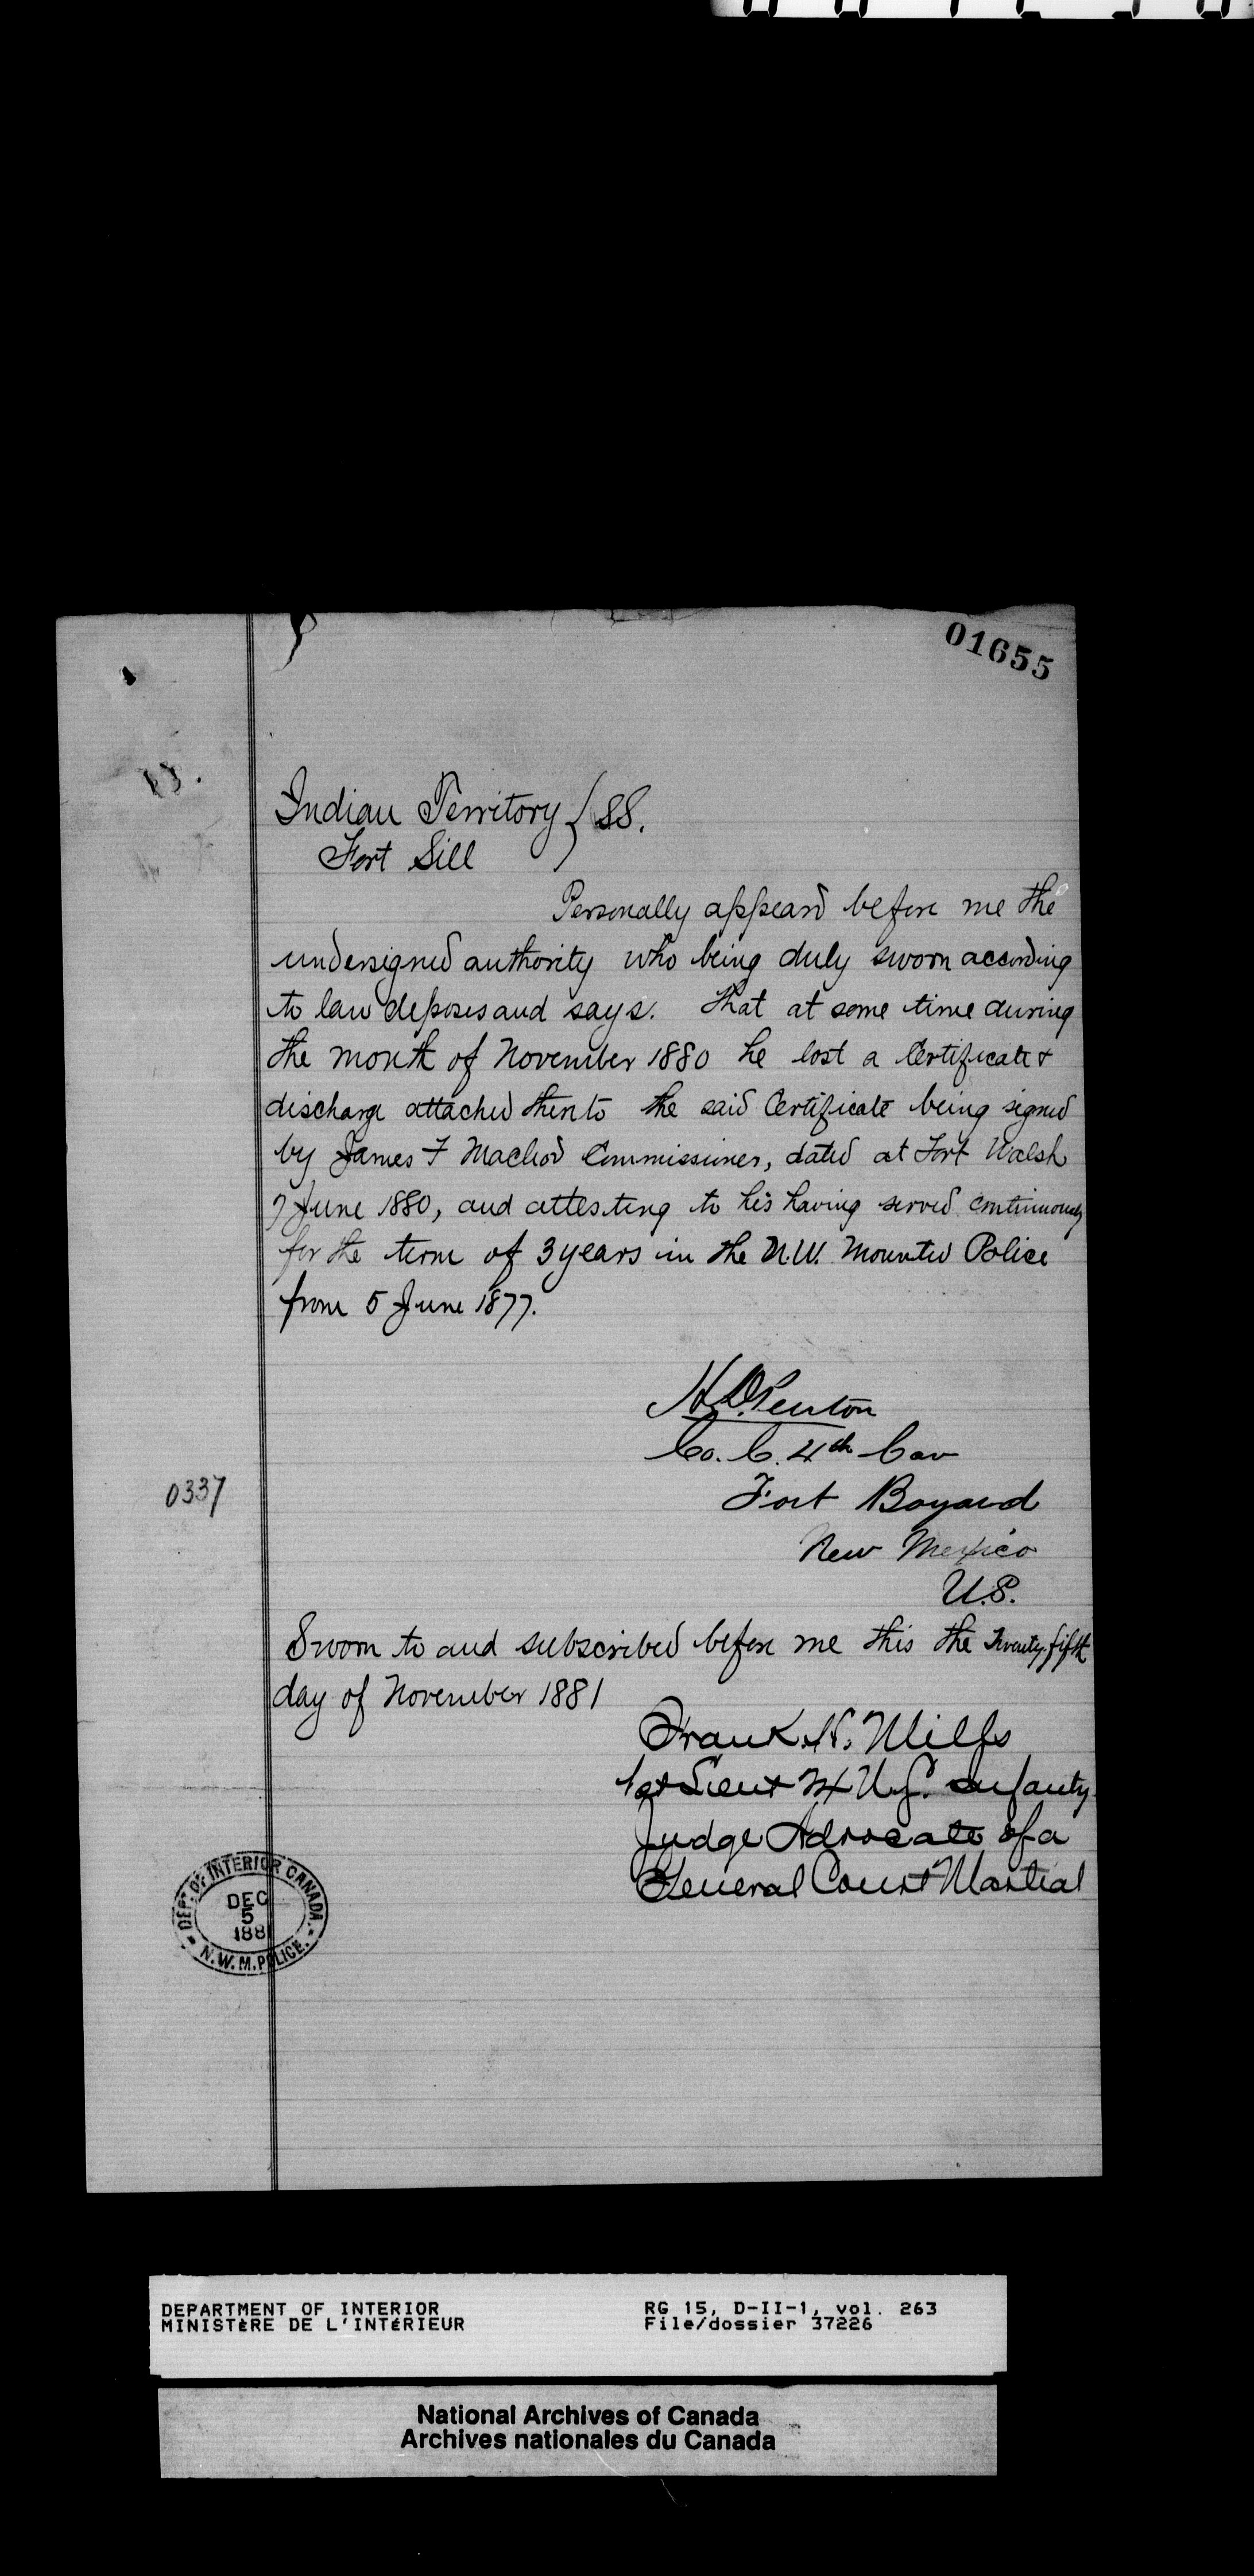 01655
Indian Territory } SS.
Fort Sill
Personally appeard before me the
undersigned authority who being duly sworn according
to law deposes and says. That at some time during
the month of November 1880 he lost a Certificate &
discharge attached thereto the said Certificate being signed
by James F Macleod Commissioner, dated at Fort Walsh
7 June 1880, and attesting to his having served continuously
for the term of 3 years in the N.W. Mounted Police
from 5 June 1877.
H.D. Penton
Co. C. 4th Cav
0337
Fort Bayard
New Mexico
U.S.
Sworn to and subscribed before me this the Twenty-fifth
day of November 1881
Frank H. Mills
1st Lieut 24 U.S. Infanty
Judge Advocate of a
General Court Martial
DEPT. OF INTERIOR CANADA.
DEC
5
188
N.W.M. POLICE.
DEPARTMENT OF INTERIOR RG 15, D-II-1, vol. 263
MINISTÈRE DE L'INTÉRIEUR File/dossier 37226
National Archives of Canada
Archives nationales du Canada